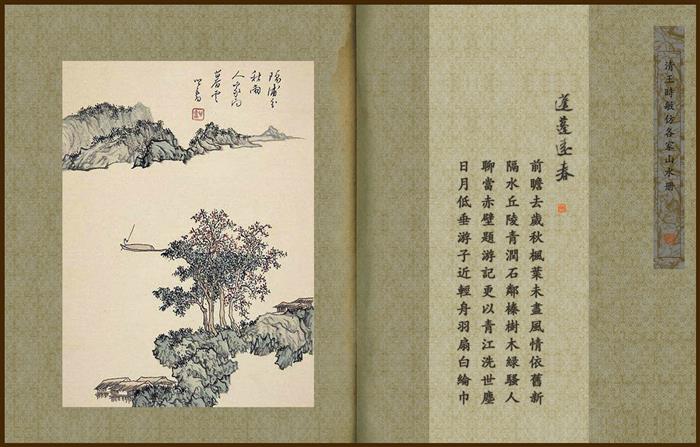 清王時敏仿各家山水冊
蓬蓬遠春
前瞻去歲秋楓葉未盡風情依舊新
隔水丘陵青潤石鄰榛樹木綠騷人
聊當赤壁題游記更以青江洗世塵
日月低垂游子近輕舟羽扇白綸巾
隔浦分
秋雨
人家同
暮雲